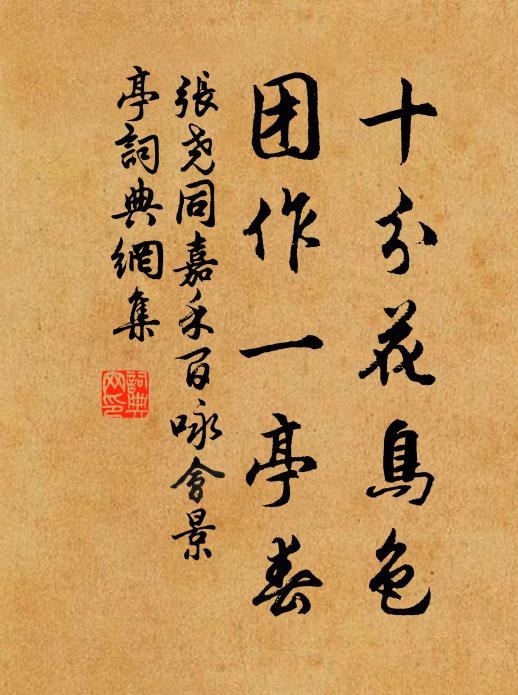 十分花鳥色
团作一亭春
張尧同嘉禾百咏會景
亭詞典網集
詞典
网印